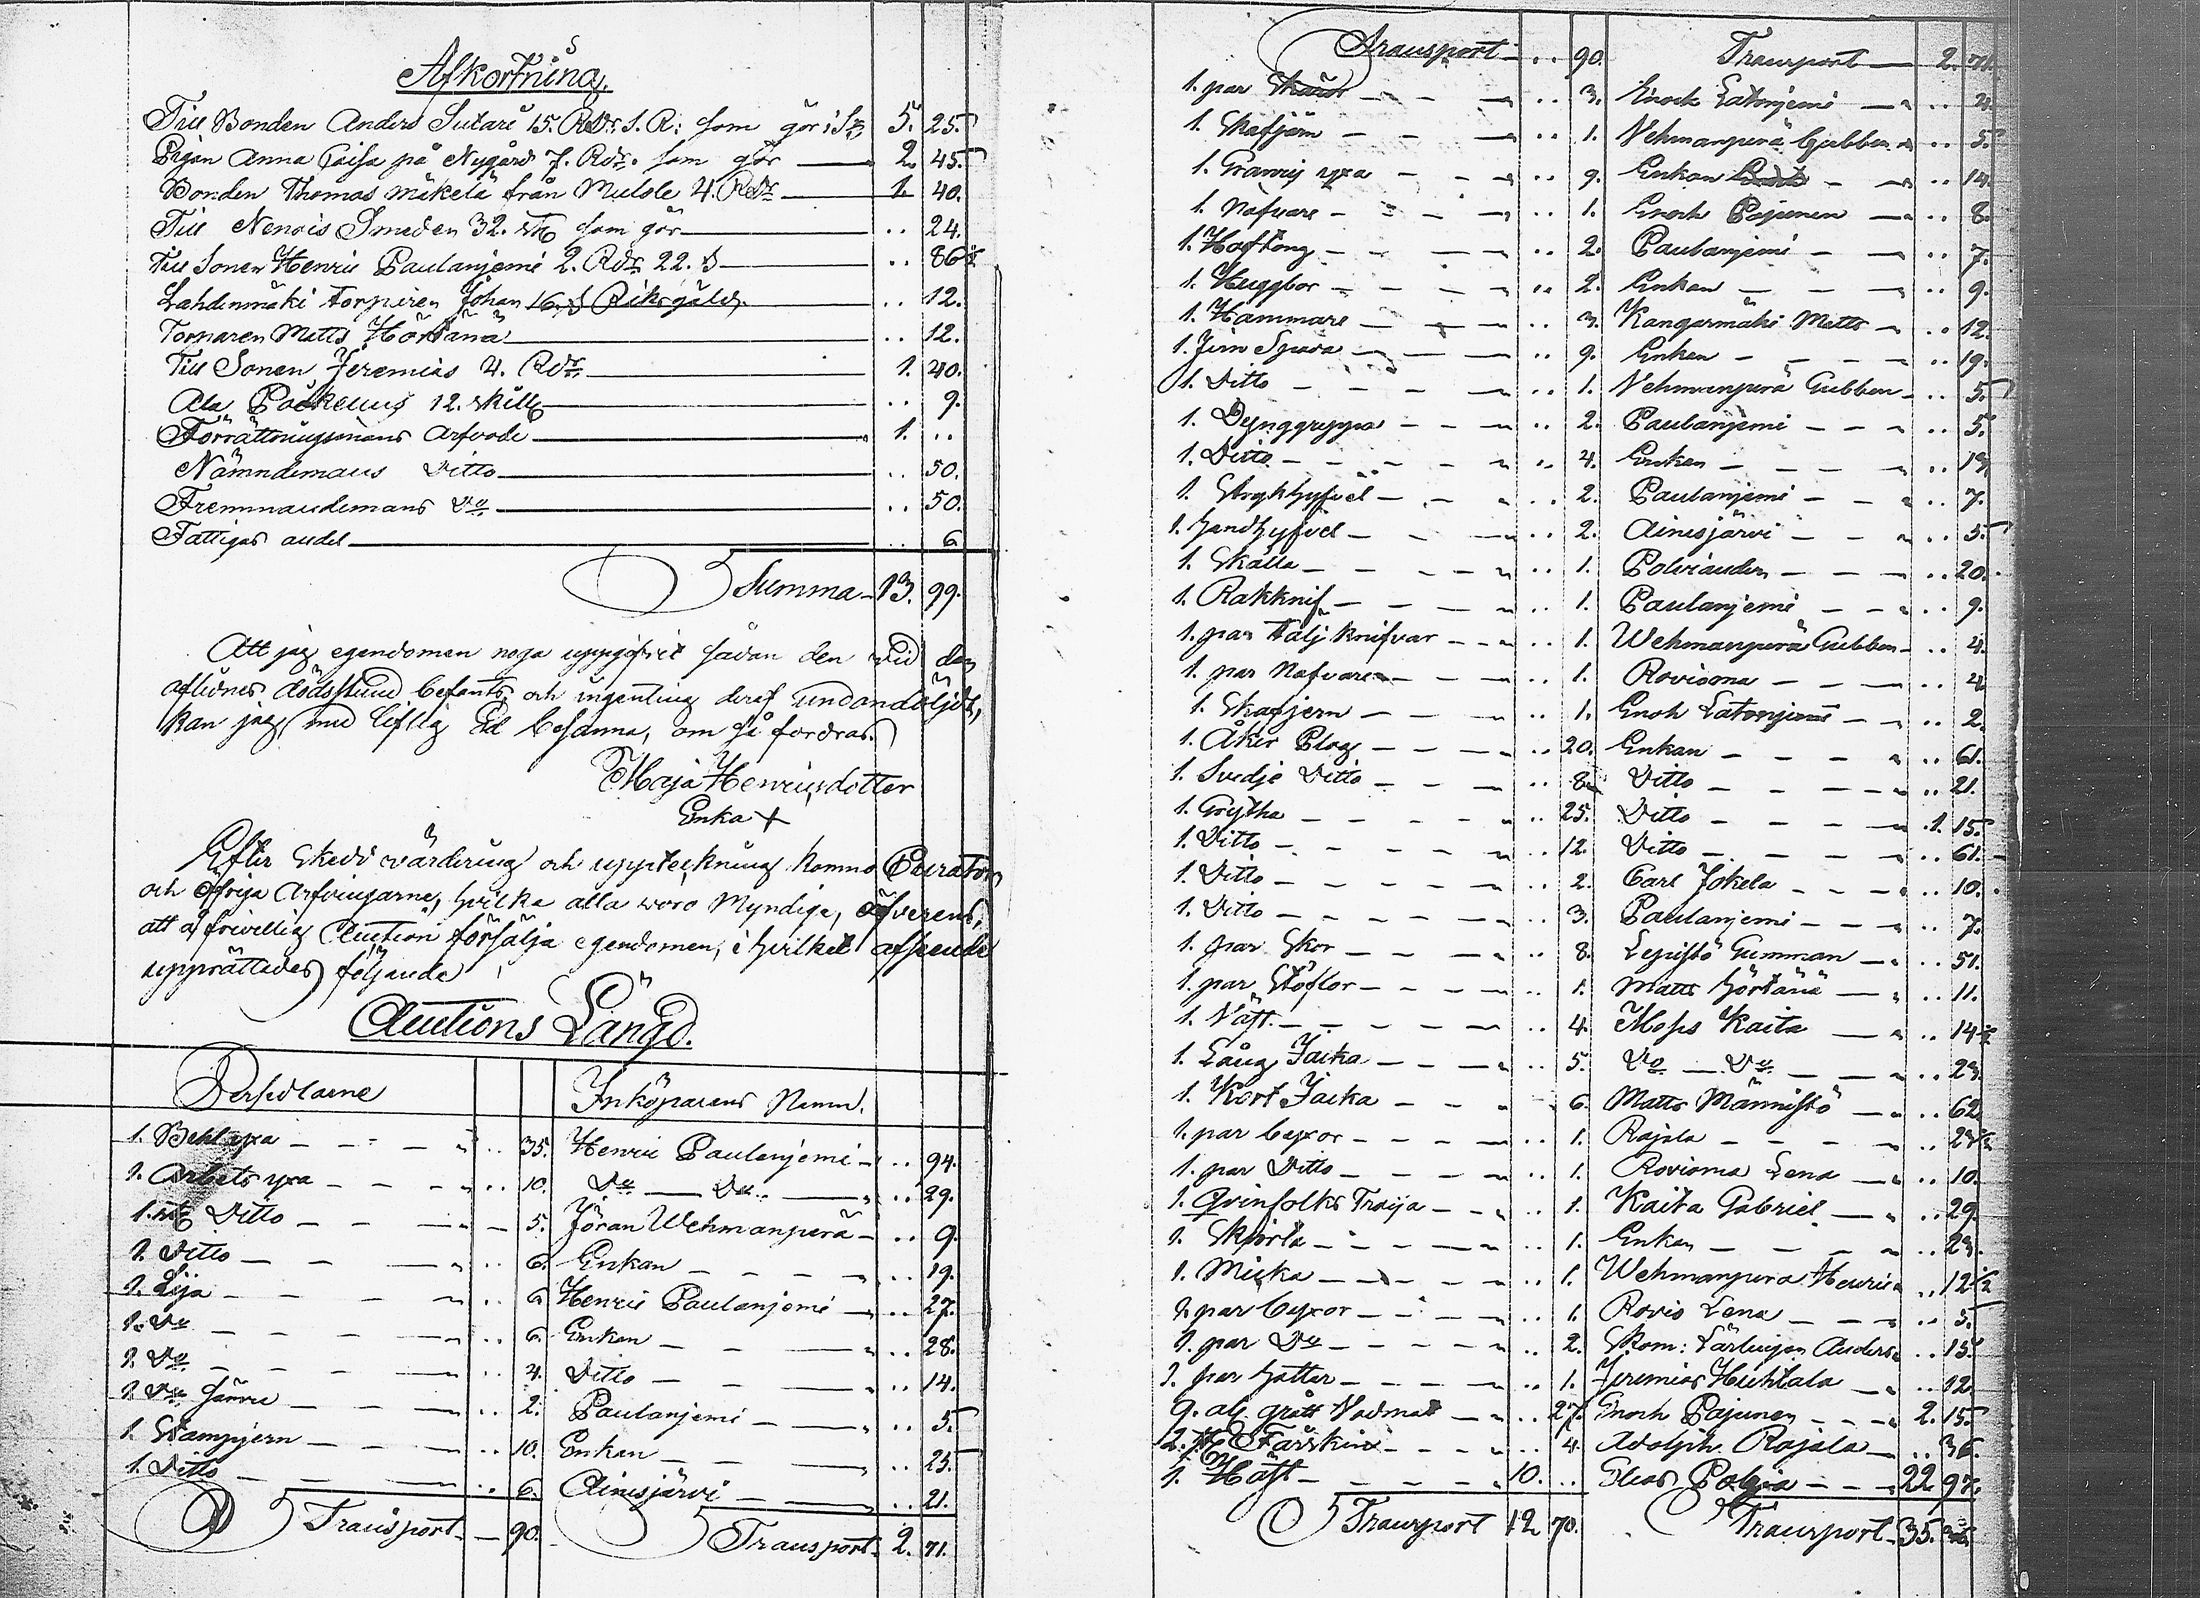 Afkortning.
Till Bonden Anders Sutari 15. Rdr. S. R: som gör i Sr 5. 25.
Pigan Anna Caisa på Nygård 7. Rdr. som gör 2. 45
Bonden Thomas Mäkelä från Mulole 4. Rdr 1. 40.
Till Smeden 32. som gör .. 24.
Till Sonen Henric Paulanjemi 2. Rdr. 22. s .. 86½
Lahdenmäki torparen Johan 16. s Riksgäld. .. 12.
Torparen Matts Hörtänä .. 12.
Till Sonen Jeremias 4. Rdr 1. 40.
Ala 12. skill .. 9.
Förrättningsmans Arfvode 1. ..
Nämndemans Ditto .. 50.
Do .. 50.
Fattigas andel .. 6
Summa 13. 99.
Att jag egendomen noga uppgifvit sådan den vid den
aflidnes dödsstund befants och ingenting deraf undandöljdt,
kan jag med liflig Ed besanna, om så fordras.
Maja Henricsdotter
Enka +
Efter skedd värdering och uppteckning kommo Curatorn
och öfriga Arfvingarne, hvilka alla woro Myndige, öfverens,
att å frivillig Auction försälja egendomen, i hvilket afseende
upprättades följande
Auctions Längd.
Persedlarne Inköparens Namn.
1. yxa .. 35. Henric Paulanjemi .. 94.
1. Arbets yxa .. 10. Do Do .. 29.
1. Ditto 5. Jöran Wehmanperä .. 9.
1. Ditto .. 6. Enkan .. 19.
1. Lija .. 6 Henric Paulanjemi .. 27.
1. Do .. 6. Enkan .. 28.
1. Do .. 4. Ditto .. 14.
1. Do sämre .. 2. Paulanjemi .. 5.
1. Stampjern .. 10. Enkan .. 25.
1. Ditto .. 6. Ainesjärvi .. 21.
Transport 90. Transport 2. 71.
Transport .. 90. Transport 2. 71.
1. par .. 3. Enock Latonjemi .. 4.
1. Skafjärn .. 1. Vehmanperä Gubben .. 5
1. yxa .. 9. Enkan .. 14.
1. Nafvare .. 1. Enoch Pajunen .. 8.
1. Hoftong .. 2. Paulanjemi .. 7.
1. Huggbor .. 2. Enkan .. 9.
1. Hammare .. 3. Kangasmäki Matts .. 12.
1. Jern Spada .. 9. Enkan .. 19.
1. Ditto .. 1. Vehmanperä Gubben .. 5.
1. Dynggreppa .. 2. Paulanjemi .. 5.
1. Ditto .. 4. Enkan .. 13
1. Strykhyfvel .. 2. Paulanjemi .. 7.
1. Handhyfvel .. 2. Ainesjärvi .. 5
1. Skälla .. 1. Polviander .. 20.
1. Rakknif .. 1. Paulanjemi .. 9.
1. par tälj knifvar .. 1. Wehmanperä Gubben .. 4.
1. par Nafvare .. 1. Rovioma .. 4.
1. Skafjern .. 1. Enoh Latonjemi .. 2.
1. Åker Plog .. 20. Enkan .. 61.
1. Svedje Ditto .. 8. Ditto .. 21.
1. Grytha .. 25. Ditto 1. 15.
1. Ditto .. 12. Ditto .. 61.
1. Ditto .. 2. Carl Jokela .. 10.
1. Ditto .. 3. Paulanjemi .. 7.
1. par Skor .. 8. Lepistö Gumman .. 51.
1. par Stöflor .. 1. Matts Hörtänä .. 11.
1. Väst .. 4. Moses Kaita .. 14½
1. Lång Jacka .. 5. Do Do .. 23.
1. Kort Jacka 6. Matts Männistö .. 62.
1. par byxor .. 1. Rajala .. 23½
1. par Ditto .. 1. Rovioma Lena .. 10.
1. Qvinfolks Tröija .. 1. Kaita Gabriel .. 29.
1. Skjorta .. 1. Enkan .. 23.
1. Micka .. 1. Wehmanperä Henric .. 12½
1. par byxor .. 1. Rovio Lena .. 5.
1. par Do .. 2. Skom: Lärlingen Anders .. 15.
1. par hattar .. 1. Jeremias Huhtala .. 12
9. alj grått Vadmal .. 27. Enoch Pajunen 2. 15.
2. Fårskin .. 4. Adolph Rajala .. 36.
1. Häst 10. .. Elias Polvia 22 97.
Transport 12 70. Transport 35. 36.